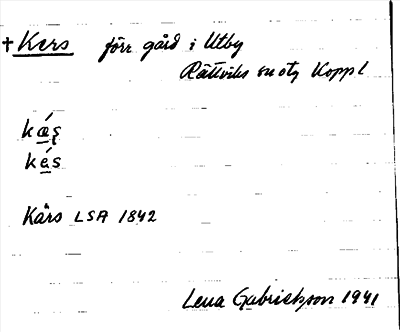 + Kers förr gård i Utby
Rättviks sn otg Koppl
kǽ̲ş
ké̲s
Kårs LSA 1842
Lena Gabrielsson 1941